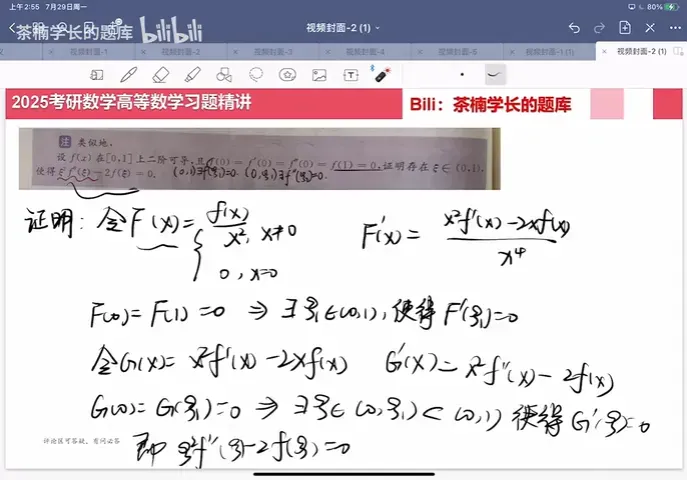 上午2:55 7月29日周一
80%
茶楠学长的题库 bilibili
视频封面-2 (1)
视频封面-1 视频封面-2 视频封面-3 视频封面-4 视频封面-5 视频封面-1 (1) 视频封面-2 (1)
2025考研数学高等数学习题精讲
Bili：茶楠学长的题库
注 类似地.
设 f(x) 在[0,1]上二阶可导,且f(0)=f'(0)=f''(0)=f(1)=0,证明存在ξ∈(0,1),
使得ξ²f''(ξ)-2f(ξ)=0. (0,1)∃f'(ξ₁)=0. (0,ξ₁)∃f''(ξ₂)=0.
证明：令F(x)= { f(x)/x², x≠0
0, x=0
F'(x)= (x²f'(x)-2xf(x))/x⁴
F(0)=F(1)=0 ⇒ ∃ξ₁∈(0,1), 使得 F'(ξ₁)=0
令G(x)= x²f'(x)-2xf(x) G'(x)= x²f''(x)-2f(x)
G(0)=G(ξ₁)=0 ⇒ ∃ξ∈(0,ξ₁)⊂(0,1) 使得G'(ξ)=0
即 ξ²f''(ξ)-2f(ξ)=0
评论区可答疑，有问必答